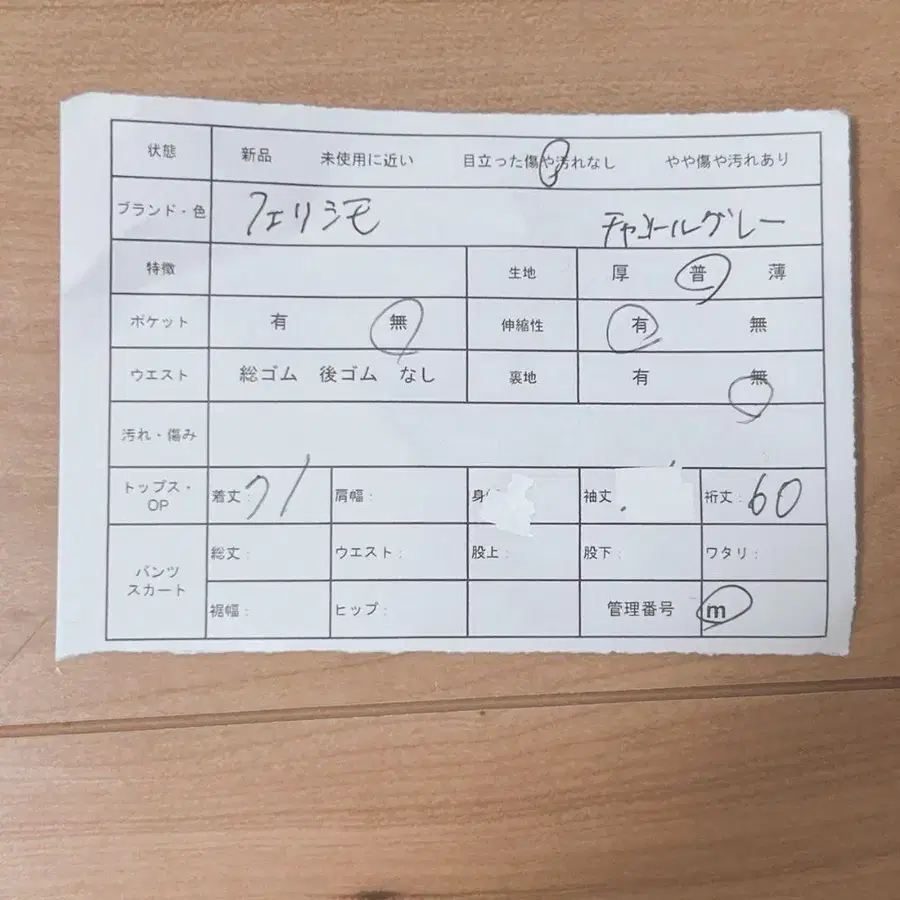 状態 新品 未使用に近い 目立った傷や汚れなし やや傷や汚れあり
ブランド・色 フェリシモ チャコールグレー
特徴 生地 厚 普 薄
ポケット 有 無 伸縮性 有 無
ウエスト 総ゴム 後ゴム なし 裏地 有 無
汚れ・傷み
トップス・OP 着丈: 71 肩幅: 身 袖丈 裄丈: 60
パンツ スカート 総丈: ウエスト: 股上: 股下: ワタリ:
裾幅: ヒップ: 管理番号 m